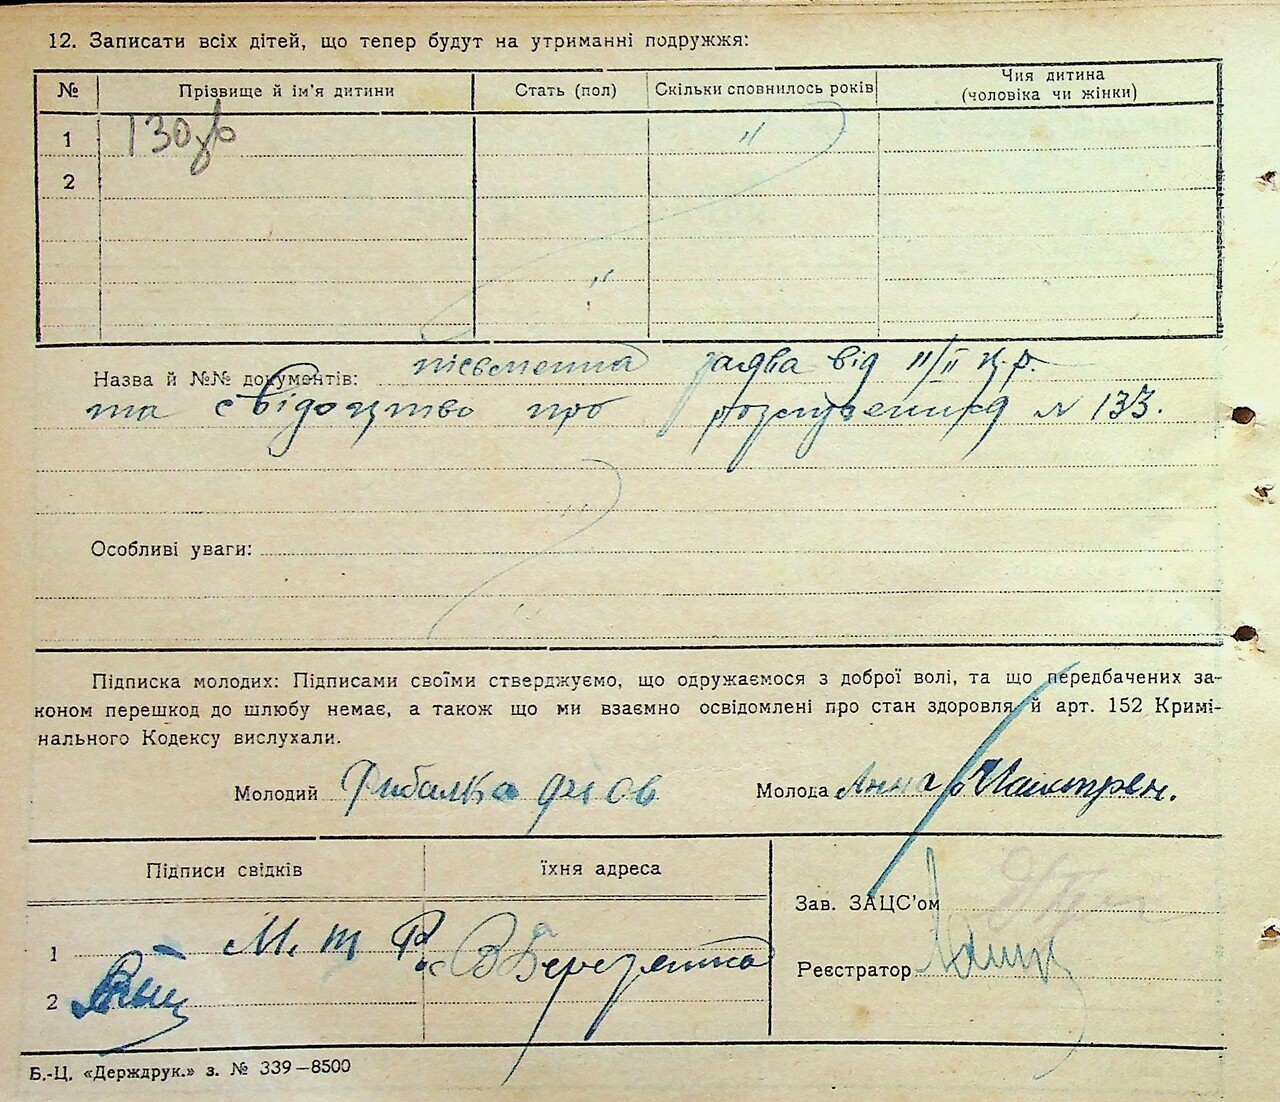 12. Записати всіх дітей, що тепер будут на утриманні подружжя:
№ Прізвище й ім'я дитини Стать (пол) Скільки сповнилось років Чия дитина
(чоловіка чи жінки)
1 "
2
"
Назва й №№ документів: письменна заява від 11/II ц.р.
та свідоцтво про N 133.
Особливі уваги:
Підписка молодих: Підписами своїми стверджуємо, що одружаємося з доброї волі, та що передбачених за-
коном перешкод до шлюбу немає, а також що ми взаємно освідомлені про стан здоровля й арт. 152 Кримі-
нального Кодексу вислухали.
Молодий Рибалка Молода Анна
Підписи свідків їхня адреса
Зав. ЗАЦС'ом
1 М. т Р. с В Березянка
Реєстратор
2
Б.-Ц. «Держдрук.» з. № 339—8500